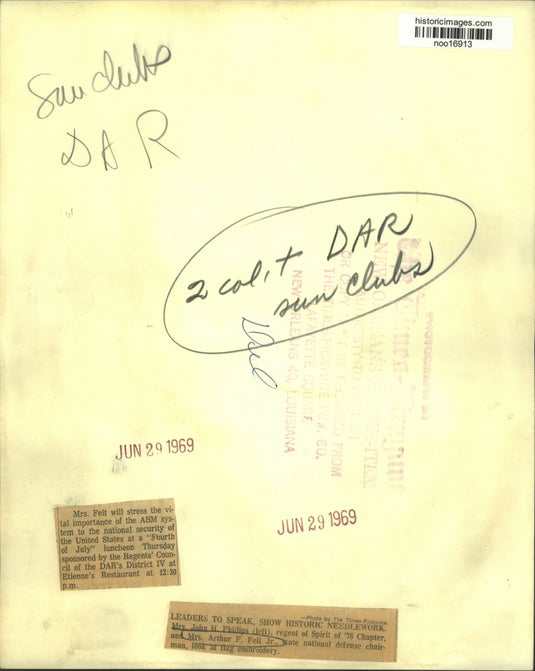 historicimages.com
noo16913
Sun clubs
DAR
2 col. + DAR
sun clubs
PHOTOGRAPH BY
NEW ORLEANS STATES-ITEM
LAFAYETTE SQUARE
NEW ORLEANS 40, LOUISIANA
JUN 29 1969
JUN 29 1969
Mrs. Felt will stress the vi-
tal importance of the ABM sys-
tem to the national security of
the United States at a "Fourth
of July" luncheon Thursday
sponsored by the Regents' Coun-
cil of the DAR's District IV at
Etienne's Restaurant at 12:30
p.m.
—Photo by The Times-Picayune.
LEADERS TO SPEAK, SHOW HISTORIC NEEDLEWORK.
Mrs. John H. Phillips (left), regent of Spirit of '76 Chapter,
and Mrs. Arthur F. Felt Jr., state national defense chair-
man, look at flag embroidery.